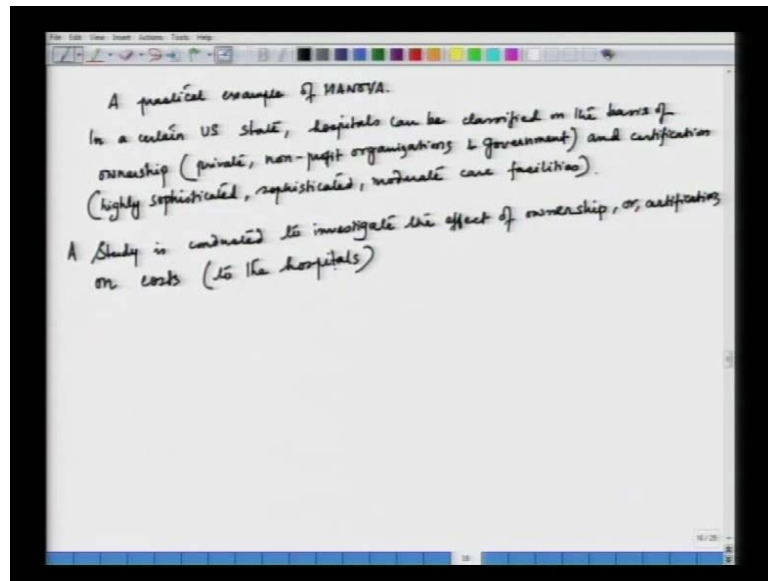 File Edit View Insert Actions Tools Help
A practical example of MANOVA.
In a certain US state, hospitals can be classified on the basis of
ownership (private, non-profit organizations & government) and certification
(highly sophisticated, sophisticated, moderate care facilities).
A Study is conducted to investigate the effect of ownership, or, certification
on costs (to the hospitals)